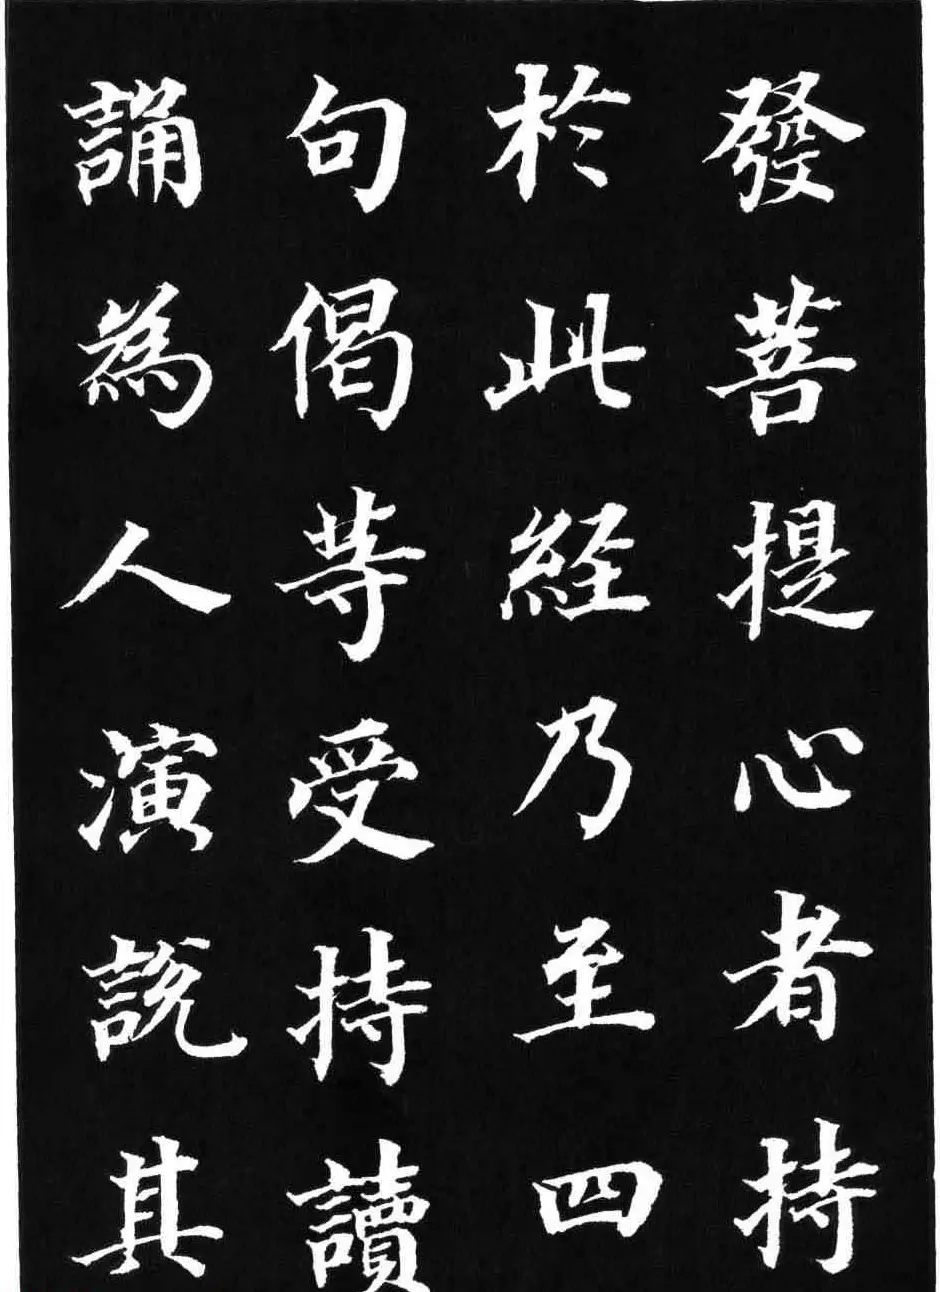 發菩提心者持
於此経乃至四
句偈等受持讀
誦為人演説其